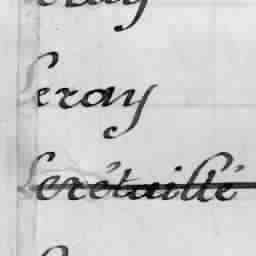 Leray
Lerétaillé